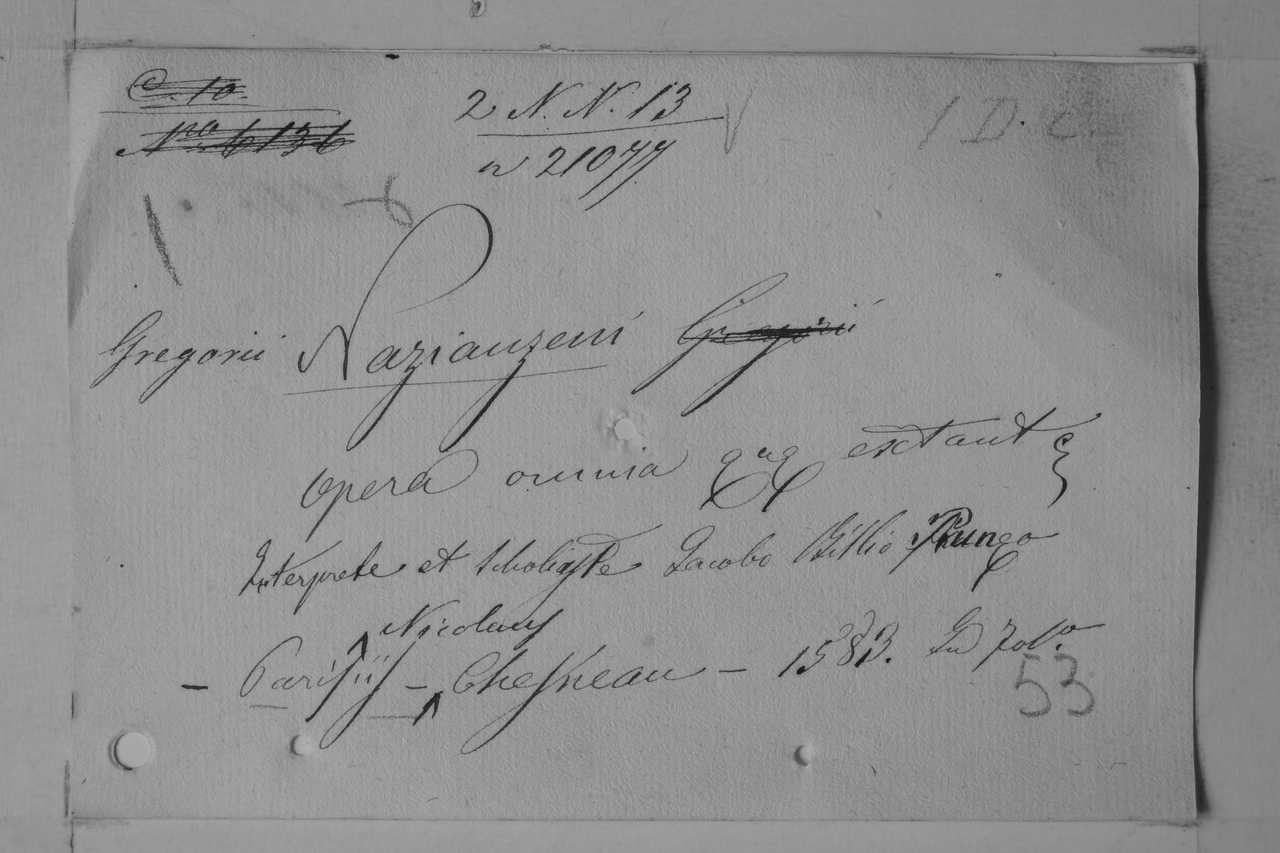 C. 10.
Nro. 6136
2 N. N. 13
n 21077
1 D. c.
Gregorii Nazianzeni Gregorii
opera omnia quę extant
Interprete et scholiaste Jacobo Billio Prunęo
Nicolaus
– Parisiis – Chesneau – 1583. In fol.o
53